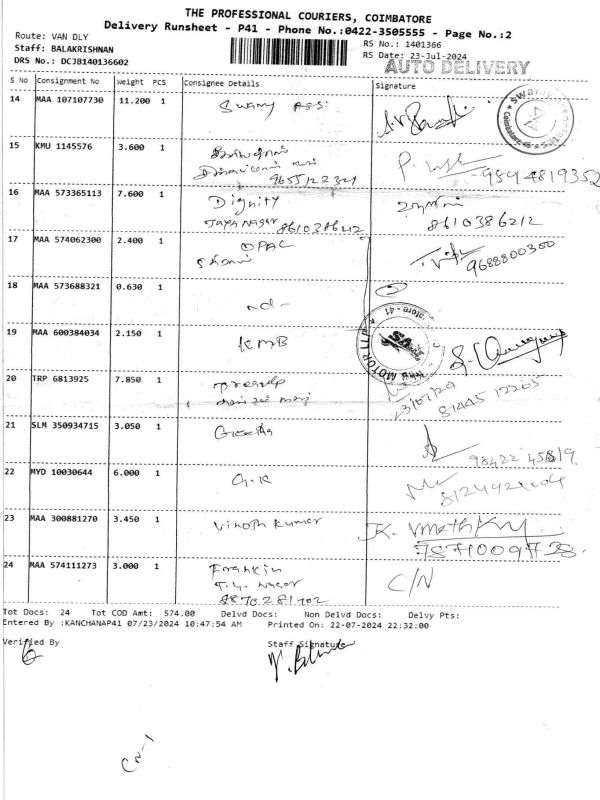 THE PROFESSIONAL COURIERS, COIMBATORE
Delivery Runsheet - P41 - Phone No.:0422-3505555 - Page No.:2
Route: VAN DLY
Staff: BALAKRISHNAN
DRS No.: DCJB140136602
RS No.: 1401366
RS Date: 23-Jul-2024
AUTO DELIVERY
S No Consignment No Weight PCS Consignee Details Signature
14 MAA 107107730 11.200 1 Swamy Ass
15 KMU 1145576 3.600 1
9655122321
9894819352
16 MAA 573365113 7.600 1 Dignity
Jaya Nagar 8610386212
8610386212
17 MAA 574062300 2.400 1 OPAL
9688800300
18 MAA 573688321 0.630 1 nd-
19 MAA 600384034 2.150 1 KMB
MOTOR LLP
20 TRP 6813925 7.850 1
23/07/24
81445 12265
21 SLM 350934715 3.050 1 Geetha
22 MYD 10030644 6.000 1 G.K
23 MAA 300881270 3.450 1 Vinoth Kumar
K. Vinoth Ku
7871009738
24 MAA 574111273 3.000 1 Franklin C/N
T.V. Nagar
8870281702
Tot Docs: 24 Tot COD Amt: 574.00 Delvd Docs: Non Delvd Docs: Delvy Pts:
Entered By :KANCHANAP41 07/23/2024 10:47:54 AM Printed On: 22-07-2024 22:32:00
Verified By Staff Signature
CN-1